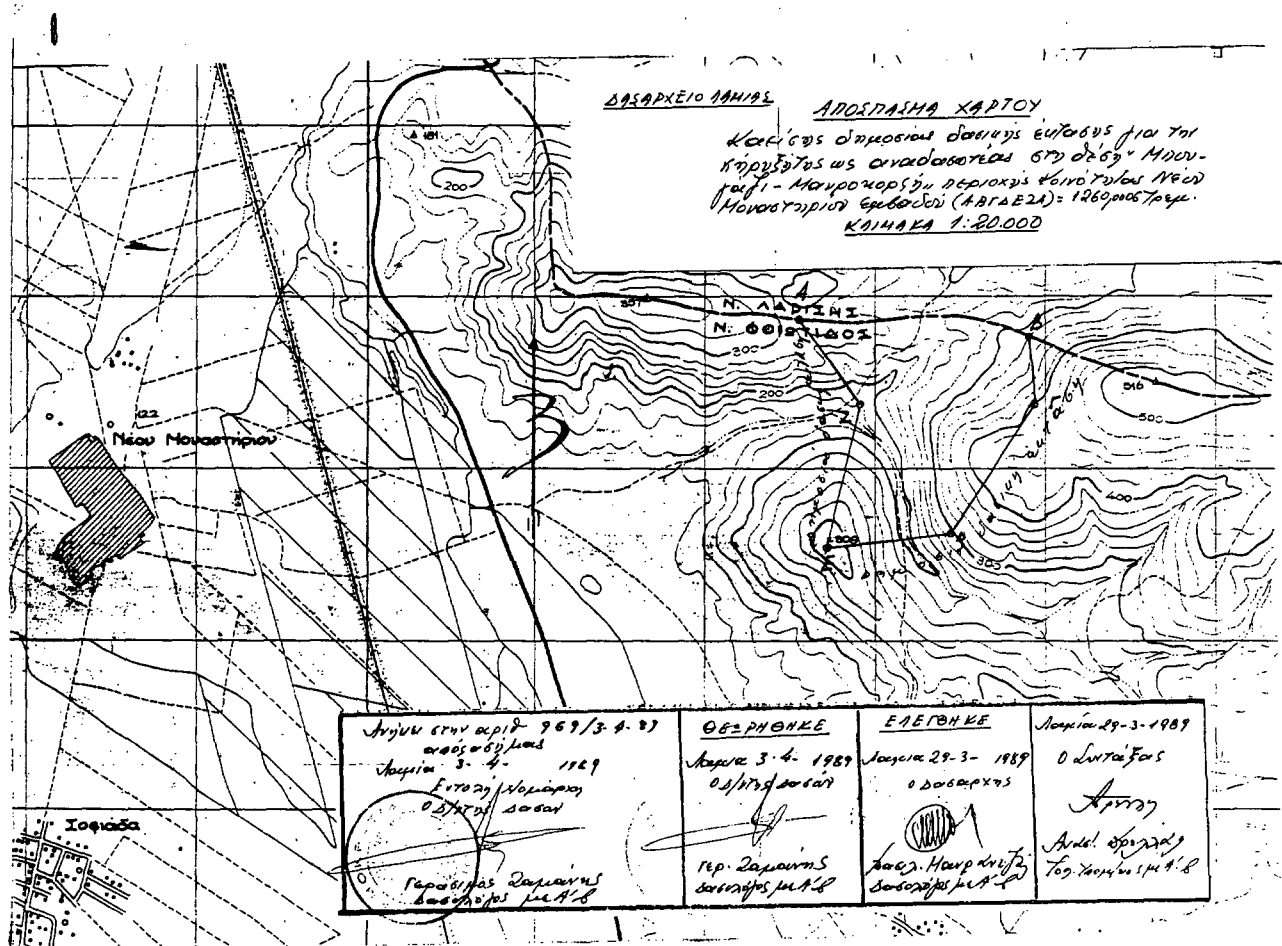 ΔΑΣΑΡΧΕΙΟ ΛΑΜΙΑΣ
ΑΠΟΣΠΑΣΜΑ ΧΑΡΤΟΥ
Καείσης δημοσίας δασικής έκτασης για την
κήρυξή της ως αναδασωτέας στη θέση "Μπου-
γάζι - Μαυροκορφή" περιοχής Κοινότητας Νέου
Μοναστηρίου εμβαδού (ΑΒΓΔΕΖΑ) = 1260,000 στρεμ.
ΚΛΙΜΑΚΑ 1:20.000
181
200
357
Α
Ν. ΛΑΡΙΣΗΣ
Ν. ΦΘΙΩΤΙΔΟΣ
Β
300
200
516
500
122
Νέου Μοναστηρίου
400
306
300
Σοφιάδα
Ανήκει στην αριθ 969/3-4-89
απόφασή μας
Λαμία 3-4-1989
Εντολή Νομάρχη
Ο Δ/ντής Δασών
Γεράσιμος Ζαμάνης
Δασολόγος με Α΄ β
ΘΕΩΡΗΘΗΚΕ
Λαμία 3-4-1989
Ο Δ/ντής Δασών
Γερ. Ζαμάνης
Δασολόγος με Α΄ β
ΕΛΕΓΘΗΚΕ
Λαμία 29-3-1989
Ο Δασάρχης
Δασολόγος με Α΄ β
Λαμία 29-3-1989
Ο Συντάξας